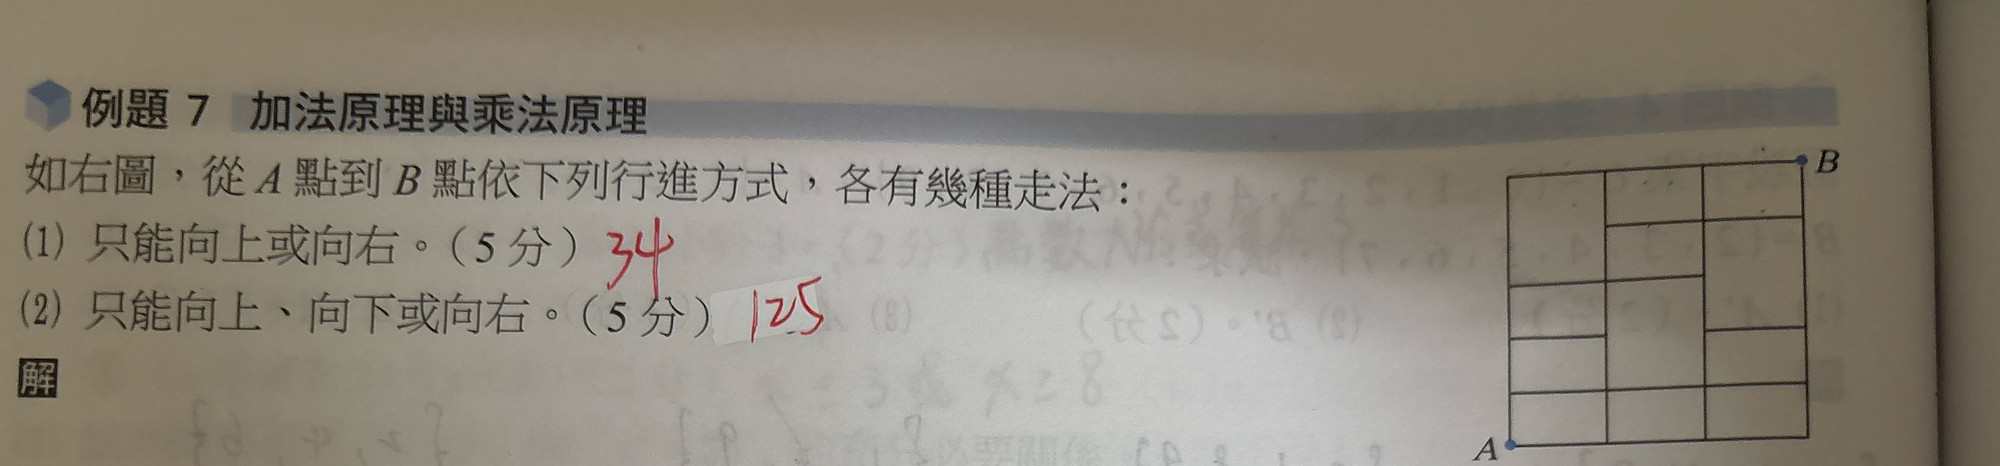 例題 7 加法原理與乘法原理
如右圖，從 A 點到 B 點依下列行進方式，各有幾種走法：
(1) 只能向上或向右。（5 分） 34
(2) 只能向上、向下或向右。（5 分） 125
解
B
A